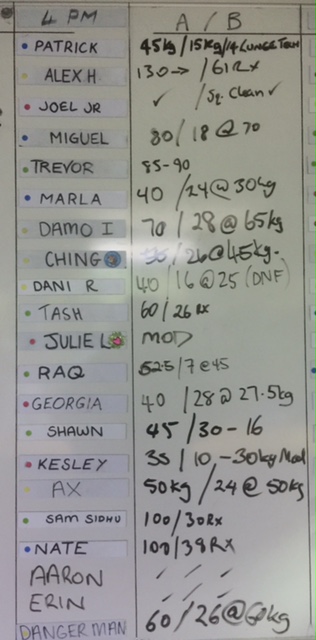 4 PM A / B
PATRICK 45kg / 15kg / 4 LUNGE
ALEX H 130→ / 61 Rx
JOEL JR ✓ / Sq. Clean ✓
MIGUEL 80 / 18 @ 70
TREVOR 85-90
MARLA 40 / 24 @ 30kg
DAMO I 70 / 28 @ 65kg
CHING / 26 @ 45kg.
DANI R 40 / 16 @ 25 (DNF)
TASH 60 / 26 Rx
JULIE L MOD
RAQ 52.5 / 7 @ 45
GEORGIA 40 / 28 @ 27.5kg
SHAWN 45 / 30 - 16
KESLEY 35 / 10 - 30kg Mod
AX 50kg / 24 @ 50kg
SAM SIDHU 100 / 30 Rx
NATE 100 / 38 Rx
AARON
ERIN
DANGERMAN 60 / 26 @ 60kg